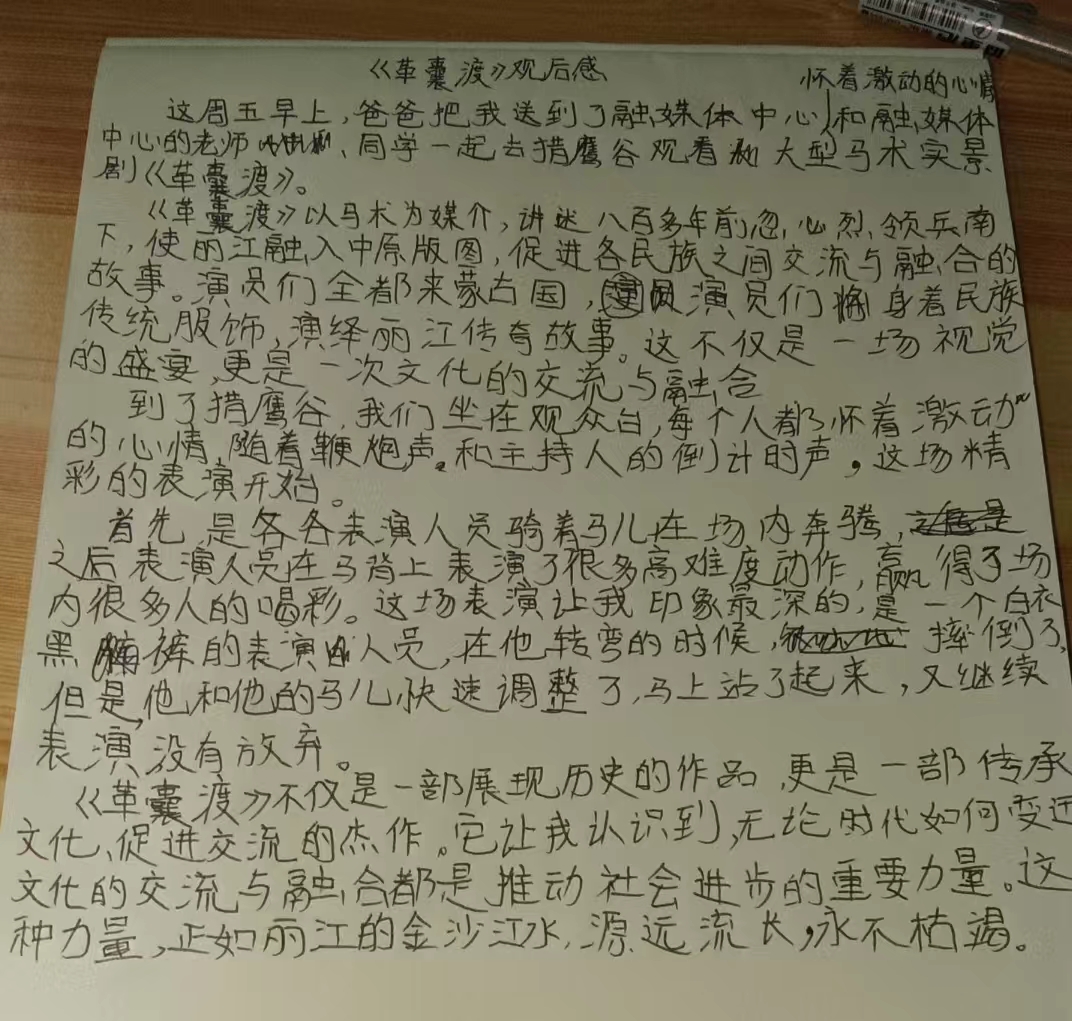 《革囊渡》观后感
怀着激动的心情
这周五早上，爸爸把我送到了融媒体中心，和融媒体
中心的老师、同学一起去猎鹰谷观看大型马术实景
剧《革囊渡》。
《革囊渡》以马术为媒介，讲述八百多年前忽必烈领兵南
下，使丽江融入中原版图，促进各民族之间交流与融合的
故事。演员们全都来蒙古国，演员们身着民族
传统服饰，演绎丽江传奇故事。这不仅是一场视觉
的盛宴，更是一次文化的交流与融合
到了猎鹰谷，我们坐在观众台，每个人都怀着激动
的心情，随着鞭炮声。和主持人的倒计时声，这场精
彩的表演开始。
首先，是各各表演人员骑着马儿在场内奔腾，
之后表演人员在马背上表演了很多高难度动作，赢得了场
内很多人的喝彩。这场表演让我印象最深的，是一个白衣
黑裤的表演人员，在他转弯的时候，摔倒了，
但是，他和他的马儿快速调整了，马上站了起来，又继续
表演，没有放弃。
《革囊渡》不仅是一部展现历史的作品，更是一部传承
文化、促进交流的杰作。它让我认识到，无论时代如何变迁
文化的交流与融合都是推动社会进步的重要力量。这
种力量，正如丽江的金沙江水，源远流长，永不枯竭。